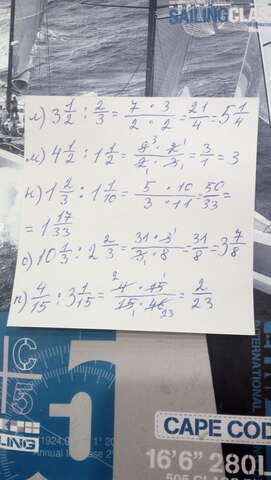 SAILING CLAS
л) 3 1/2 : 2/3 = 7 · 3 / 2 · 2 = 21/4 = 5 1/4
м) 4 1/2 : 1 1/2 = 9 · 2 / 2 · 3 = 3/1 = 3
н) 1 2/3 : 1 1/10 = 5 · 10 / 3 · 11 = 50/33 =
= 1 17/33
о) 10 1/3 : 2 2/3 = 31 · 3 / 3 · 8 = 31/8 = 3 7/8
п) 4/15 : 3 1/15 = 4 · 15 / 15 · 46 = 2/23
C
5
INTERNATIONAL
LING
CAPE COD
16'6" 280L